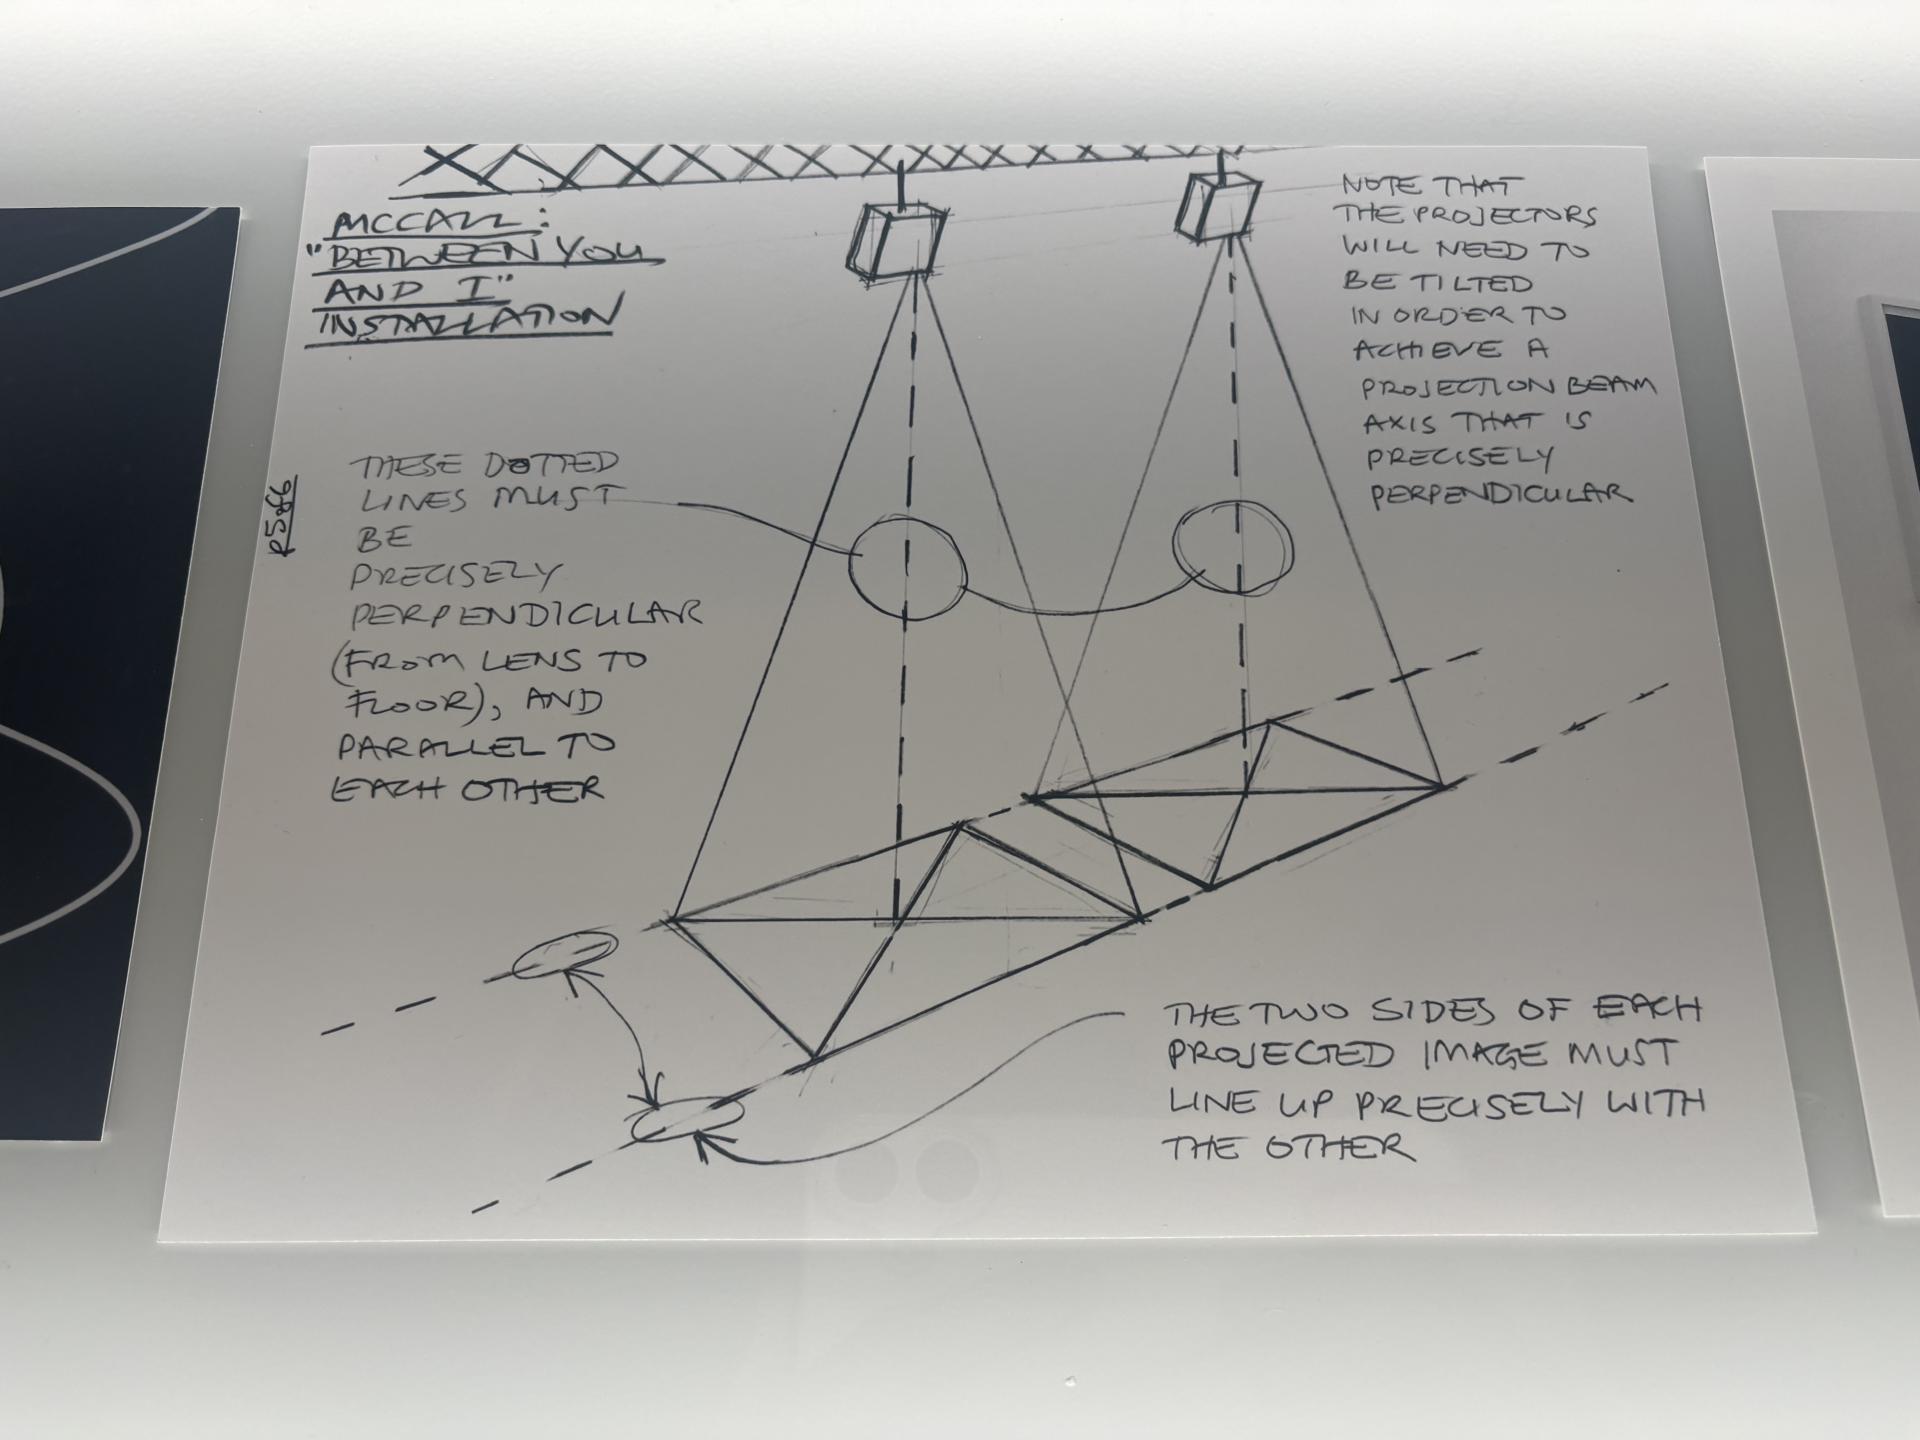 MCCALL:
"BETWEEN YOU
AND I"
INSTALLATION
NOTE THAT
THE PROJECTORS
WILL NEED TO
BE TILTED
IN ORDER TO
ACHIEVE A
PROJECTION BEAM
AXIS THAT IS
PRECISELY
PERPENDICULAR
THESE DOTTED
LINES MUST
BE
PRECISELY
PERPENDICULAR
(FROM LENS TO
FLOOR), AND
PARALLEL TO
EACH OTHER
THE TWO SIDES OF EACH
PROJECTED IMAGE MUST
LINE UP PRECISELY WITH
THE OTHER